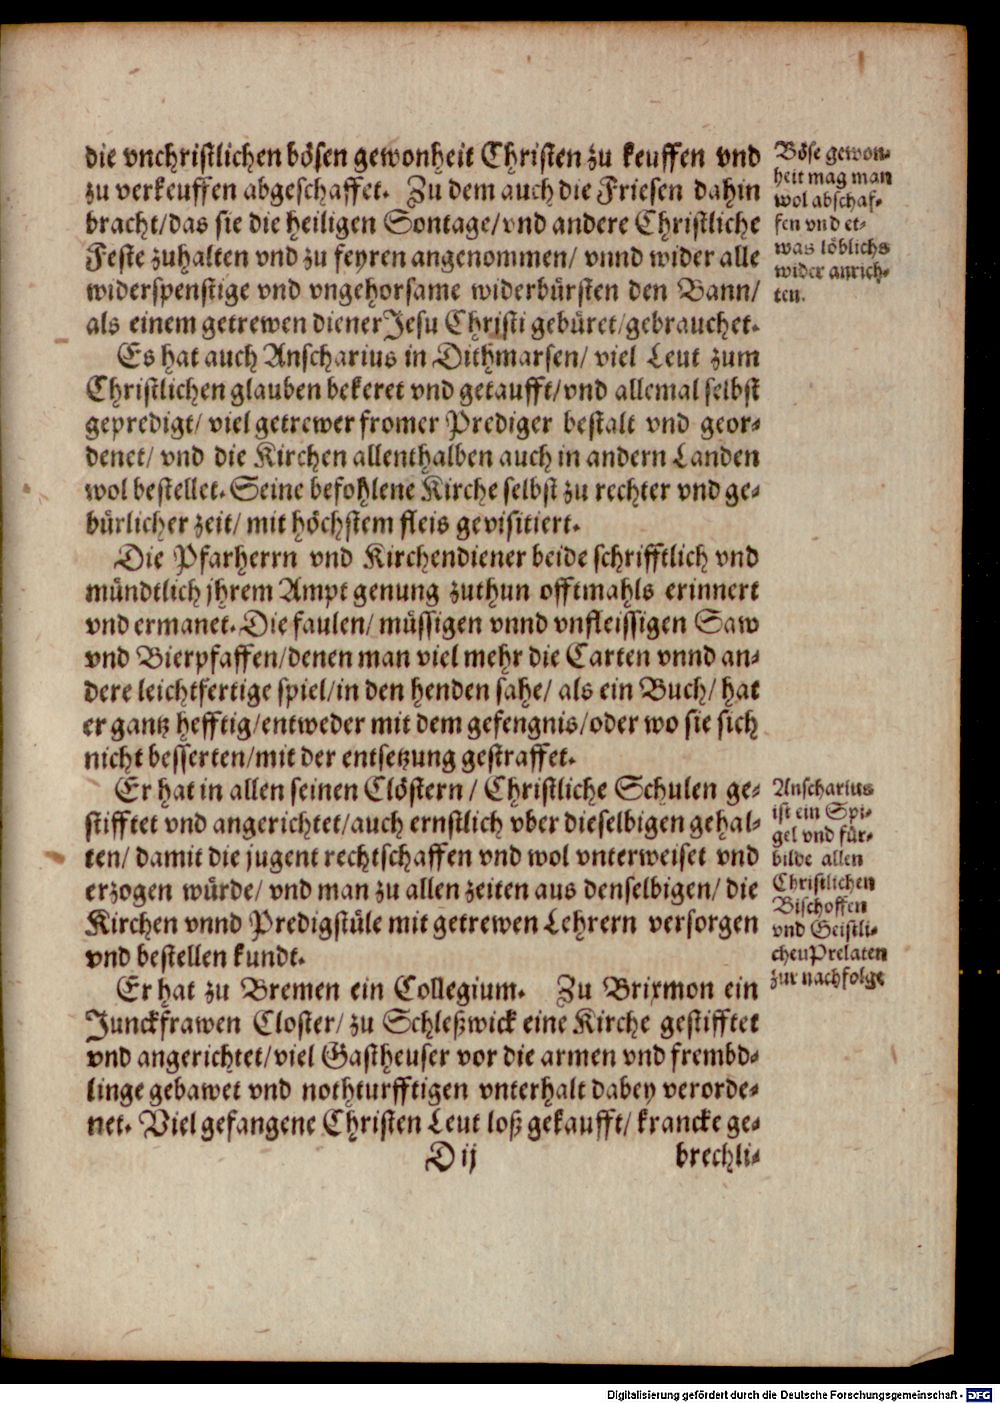 die vnchristlichen bösen gewonheit Christen zu keuffen vnd
zu verkeuffen abgeschaffet. Zu dem auch die Friesen dahin
bracht/das sie die heiligen Sontage/vnd andere Christliche
Feste zuhalten vnd zu feyren angenommen/ vnnd wider alle
widerspenstige vnd vngehorsame widerbürsten den Bann/
als einem getrewen diener Jesu Christi gebüret/gebrauchet.
Es hat auch Anscharius in Dithmarsen/ viel Leut zum
Christlichen glauben bekeret vnd getaufft/vnd allemal selbst
gepredigt/ viel getrewer fromer Prediger bestalt vnd geor-
denet/ vnd die Kirchen allenthalben auch in andern Landen
wol bestellet. Seine befohlene Kirche selbst zu rechter vnd ge-
bürlicher zeit/ mit höchstem fleis gevisitiert.
Die Pfarherrn vnd Kirchendiener beide schrifftlich vnd
mündtlich jhrem Ampt genung zuthun offtmahls erinnert
vnd ermanet. Die faulen/ müssigen vnnd vnfleissigen Saw
vnd Bierpfaffen/denen man viel mehr die Carten vnnd an-
dere leichtfertige spiel/in den henden sahe/ als ein Buch/ hat
er gantz hefftig/entweder mit dem gefengnis/oder wo sie sich
nicht besserten/mit der entsetzung gestraffet.
Er hat in allen seinen Clöstern/ Christliche Schulen ge-
stifftet vnd angerichtet/auch ernstlich vber dieselbigen gehal-
ten/ damit die jugent rechtschaffen vnd wol vnterweiset vnd
erzogen würde/ vnd man zu allen zeiten aus denselbigen/ die
Kirchen vnnd Predigstüle mit getrewen Lehrern versorgen
vnd bestellen kundt.
Er hat zu Bremen ein Collegium. Zu Brixmon ein
Junckfrawen Closter/ zu Schleßwick eine Kirche gestifftet
vnd angerichtet/viel Gastheuser vor die armen vnd frembd-
linge gebawet vnd nothturfftigen vnterhalt dabey verorde-
net. Viel gefangene Christen Leut loß gekaufft/ krancke ge-
D ij
brechli-
Böse gewon-
heit mag man
wol abschaf-
fen vnd et-
was löblichs
wider anrich-
ten.
Anscharius
ist ein Spi-
gel vnd für-
bilde allen
Christlichen
Bischoffen
vnd Geistli-
chen Prelaten
zur nachfolge
Digitalisierung gefördert durch die Deutsche Forschungsgemeinschaft - DFG